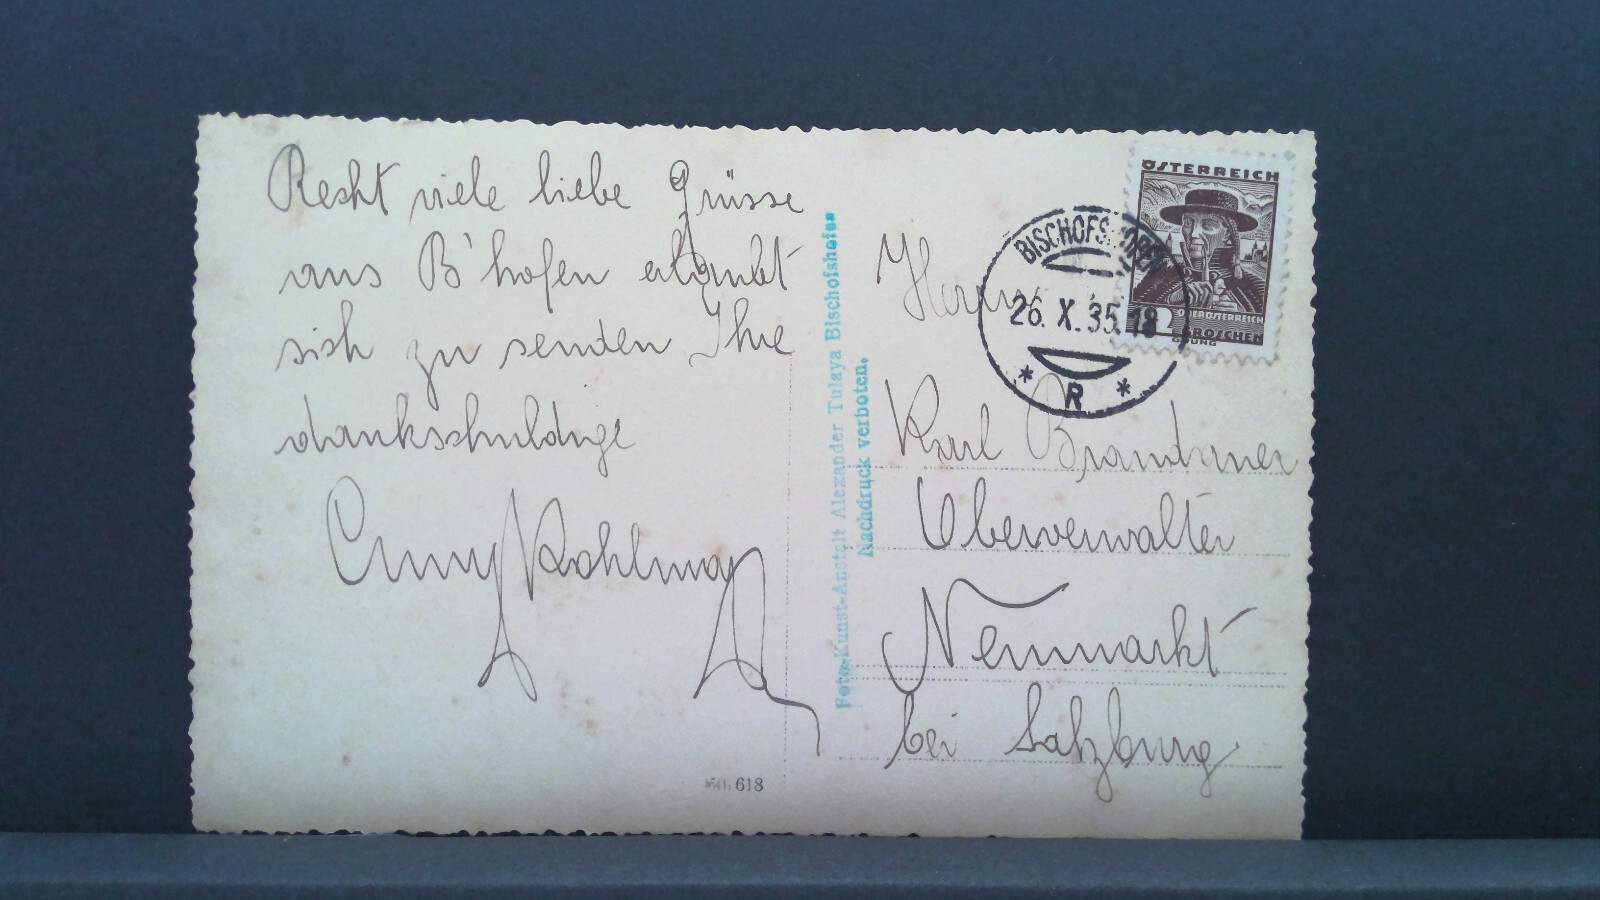 Recht viele liebe Grüsse
aus B'hofen erlaubt
sich zu senden Ihre
dankschuldige
Kohlmay
Foto-Kunst-Anstalt Alexander Tulaya Bischofshofen
Nachdruck verboten.
618
ÖSTERREICH
OBERÖSTERREICH
GROSCHEN
BISCHOFSHOFEN
26. X. 35. 18
* R *
Herrn
Karl Brandauer
Oberverwalter
Neumarkt
bei Salzburg